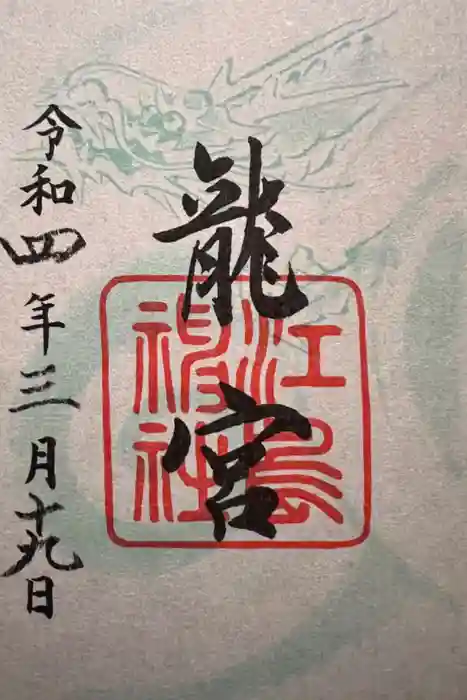 龍宮
江島神社
令和四年三月十九日